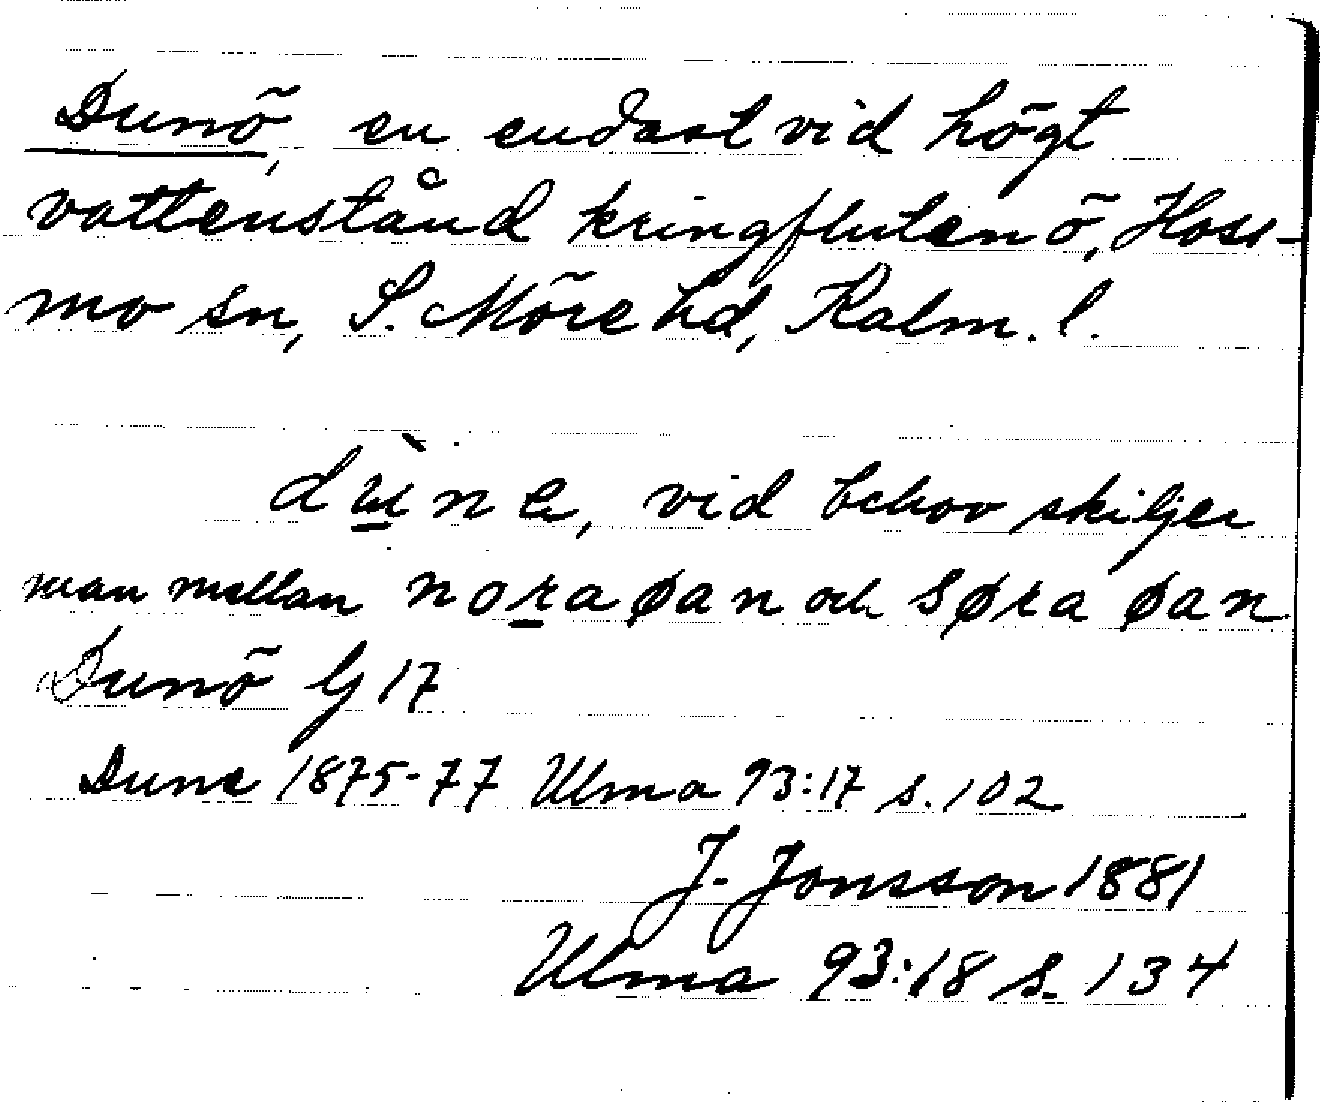 Dunö, en endast vid högt
vattenstånd kringfluten ö, Hoss-
mo sn, S. Möre hd, Kalm. l.
dùne, vid behov skiljer
man mellan nora øan och søra øan
Dunö G 17
Dune 1875-77 Ulma 93:17 s. 102
J. Jonsson 1881
Ulma 93:18 s. 134